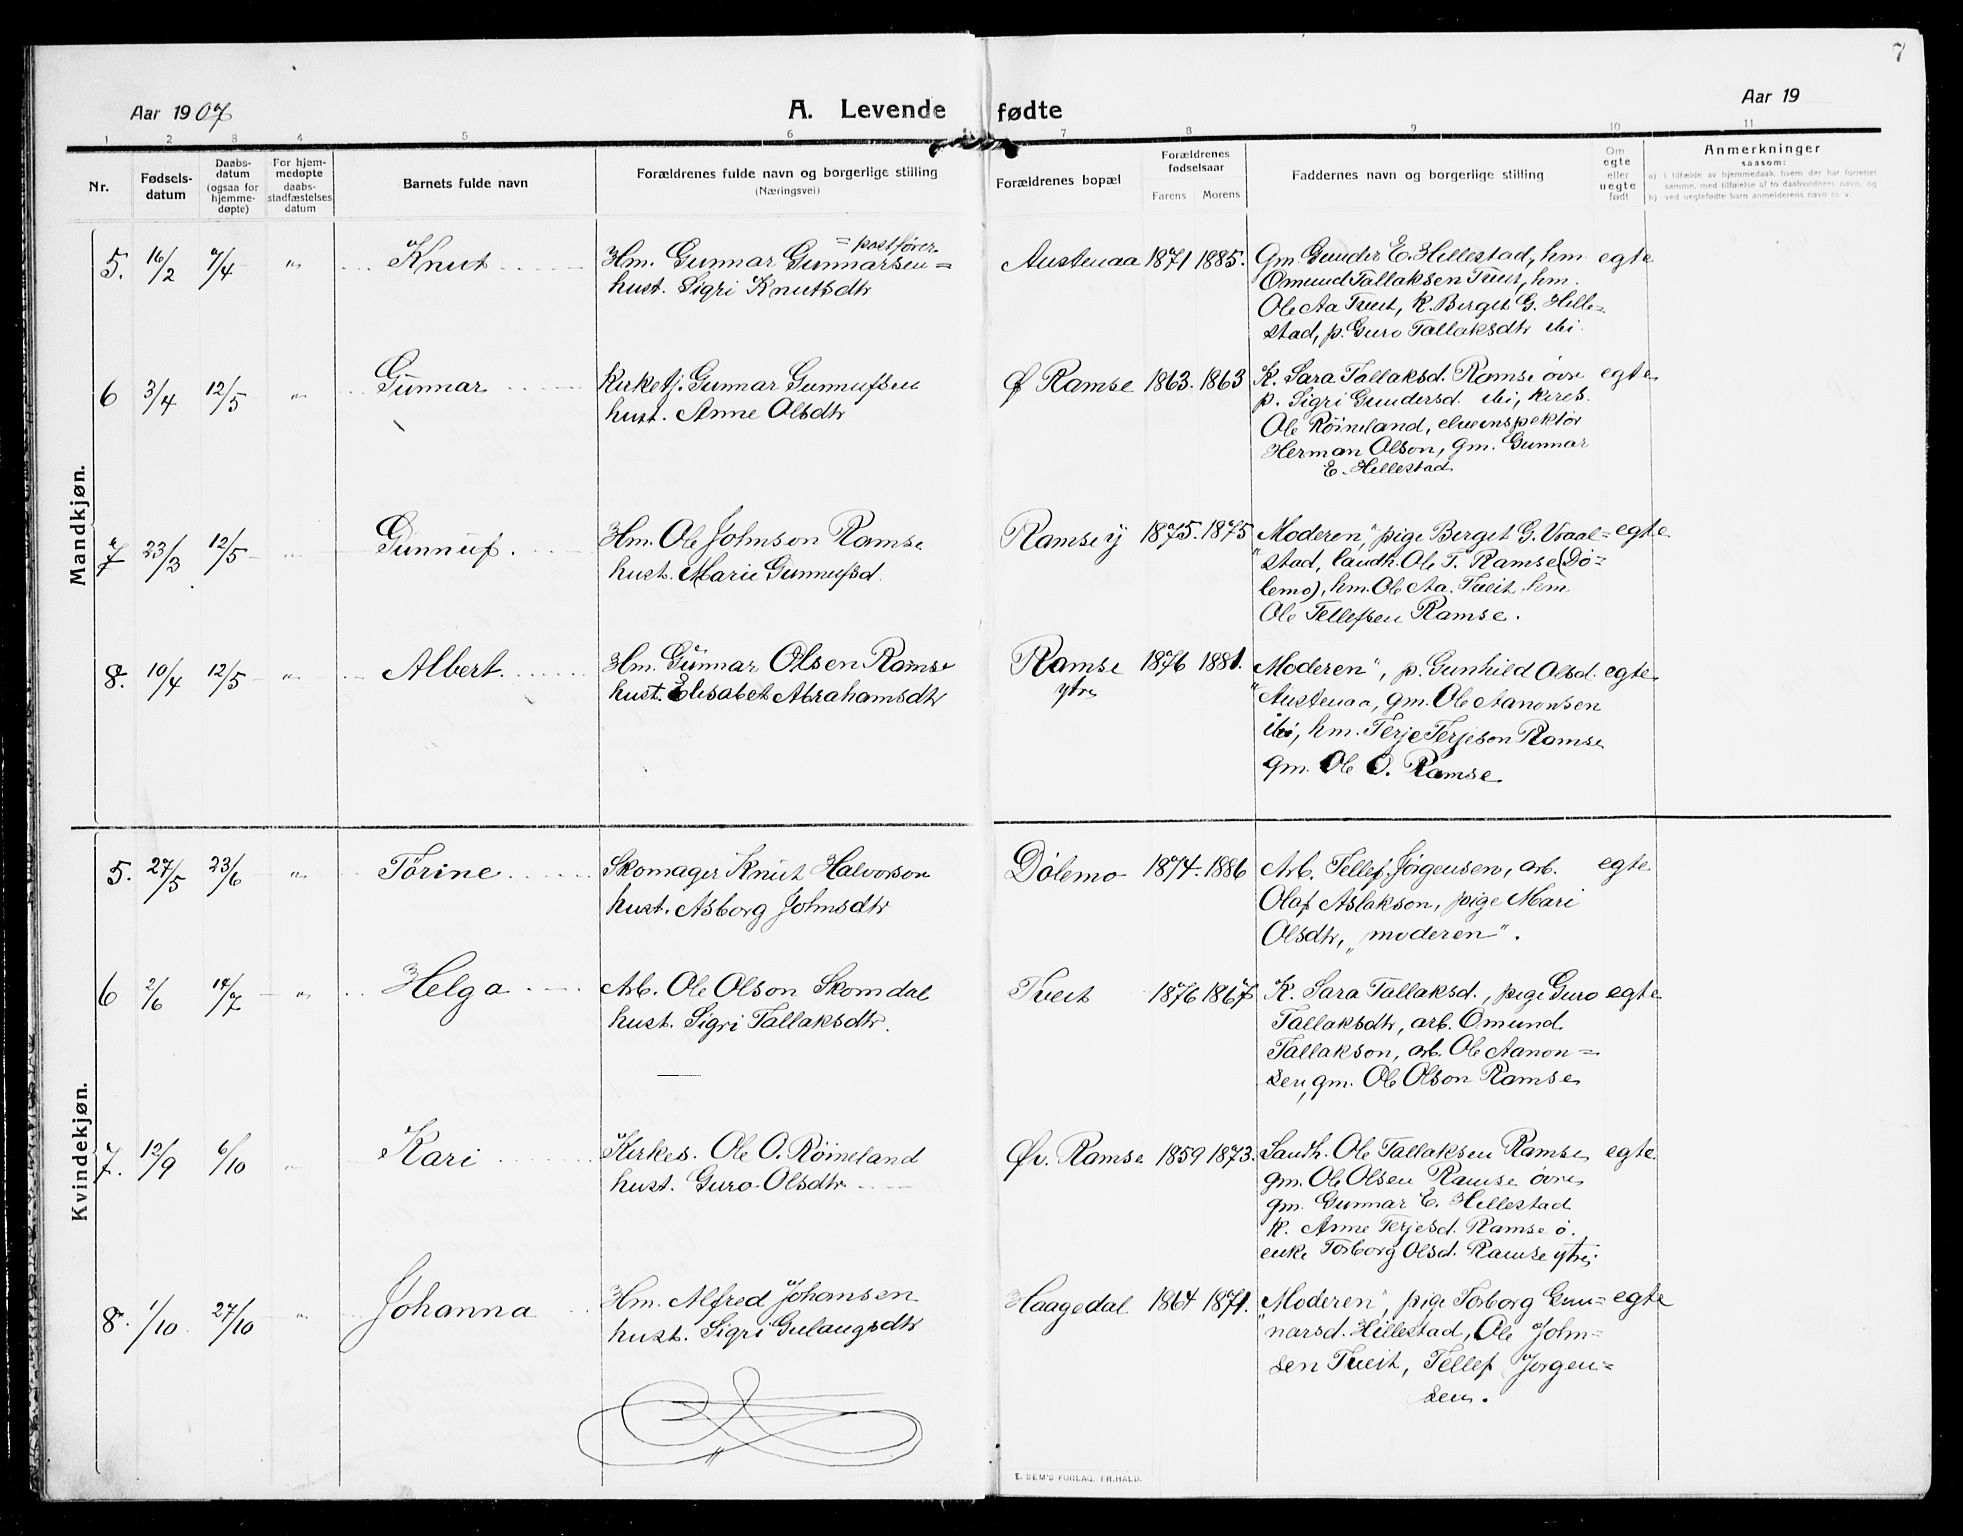 7
Aar 1907 A. Levende fødte Aar 19
1 2 3 4 5 6 7 8 9 10 11
Nr.
Fødsels-
datum
Daabs-
datum
(ogsaa for
hjemme-
døpte)
For hjem-
medøpte
daabs-
stadfæstelses
datum
Barnets fulde navn
Forældrenes fulde navn og borgerlige stilling
(Næringsvei)
Forældrenes bopæl
Forældrenes
fødselsaar
Farens Morens
Faddernes navn og borgerlige stilling
Om
egte
eller
uegte
født
Anmerkninger
saasom:
a) i tilfælde av hjemmedaab, hvem der har forrettet
samme, med tilføielse af to daabsvidners navn, og
b) ved uegtefødte barn anmelderens navn m. v.
Mandkjøn.
5. 16/2 7/4 " Knut
= postfører
Hm. Gunnar Gunnarsen =
hust. Sigri Knutsdtr
Austenaa 1871 1885.
Gm. Gunder E. Hillestad, hm
Omund Tallaksen Tveit, hm.
Ole Aa Tveit, k. Berget G. Hille-
stad, p. Guro Tallaksdtr ibi.
egte
6 3/4 12/5 " Gunnar
Kirketj. Gunnar Gunnufsen
hust. Anne Olsdtr
Ø Ramse 1863. 1863
K. Sara Tallaksd. Ramse øvre
p. Sigri Gundersd. ibi, kirkes.
Ole Røineland, elveinspektør
Herman Olson, gm. Gunnar
E. Hillestad
egte
7 23/3 12/5 " Gunnuf.
Hm. Ole Johnson Ramse
hust. Marie Gunnufsd.
Ramse y 1875. 1875
"Moderen", pige Berget G. Vraal=
stad, landh. Ole T. Ramse (Dø=
lemo), hm. Ole Aa. Tveit, hm
Ole Tellefsen Ramse.
egte
8. 10/4 12/5 " Albert.
Hm. Gunnar Olsen Ramse
hust. Elisabet Abrahamsdtr
Ramse
ytre
1876 1881.
"Moderen", p. Gunhild Olsd.
Austenaa, gm. Ole Aanonsen
ibi, hm. Terje Terjeson Ramse
gm. Ole O. Ramse
egte
Kvindekjøn.
5. 27/5 23/6 " Tørine
Skomager Knut Halvorson
hust. Asborg Johnsdtr
Dølemo 1874. 1886
Arb. Tellef Jørgensen, arb.
Olaf Aslakson, pige Mari
Olsdtr, "moderen".
egte
6 2/6 14/7 " Helga
Arb. Ole Olson Skomdal
hust. Sigri Tallaksdtr.
Tveit 1876 1867
K. Sara Tallaksd., pige Guro
Tallaksdtr, arb. Omund
Tallakson, arb. Ole Aanon=
sen, gm. Ole Olson Ramse
egte
7. 12/9 6/10 " Kari
Kirkes. Ole O. Røineland
hust. Guro Olsdtr
Øv. Ramse 1859 1873.
Landh. Ole Tallaksen Ramse
gm. Ole Olsen Ramse øvre
gm. Gunnar E. Hillestad
k. Anne Terjesd. Ramse ø.
enke Torborg Olsd. Ramse ytre
egte
8. 1/10 27/10 " Johanna
Hm. Alfred Johansen
hust. Sigri Gulaugsdtr
Haagedal 1864 1871.
"Moderen", pige Torborg Gun=
narsd. Hillestad, Ole John=
sen Tveit, Tellef Jørgen=
sen.
egte
E. SEM'S FORLAG, FR.HALD.